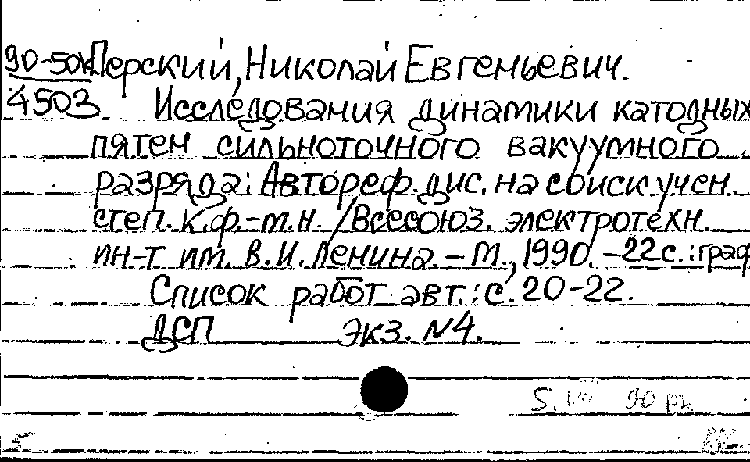 90-50к Перский, Николай Евгеньевич.
4503 Исследования динамики катодных
пятен сильноточного вакуумного
разряда: Автореф. дис. на соиск. учен.
степ. к.ф.-м.н. /Всесоюз. электротехн.
ин-т им. В.И. Ленина. - М., 1990. - 22 с.: граф
Список работ авт.: с. 20-22.
ДСП Экз. N4.